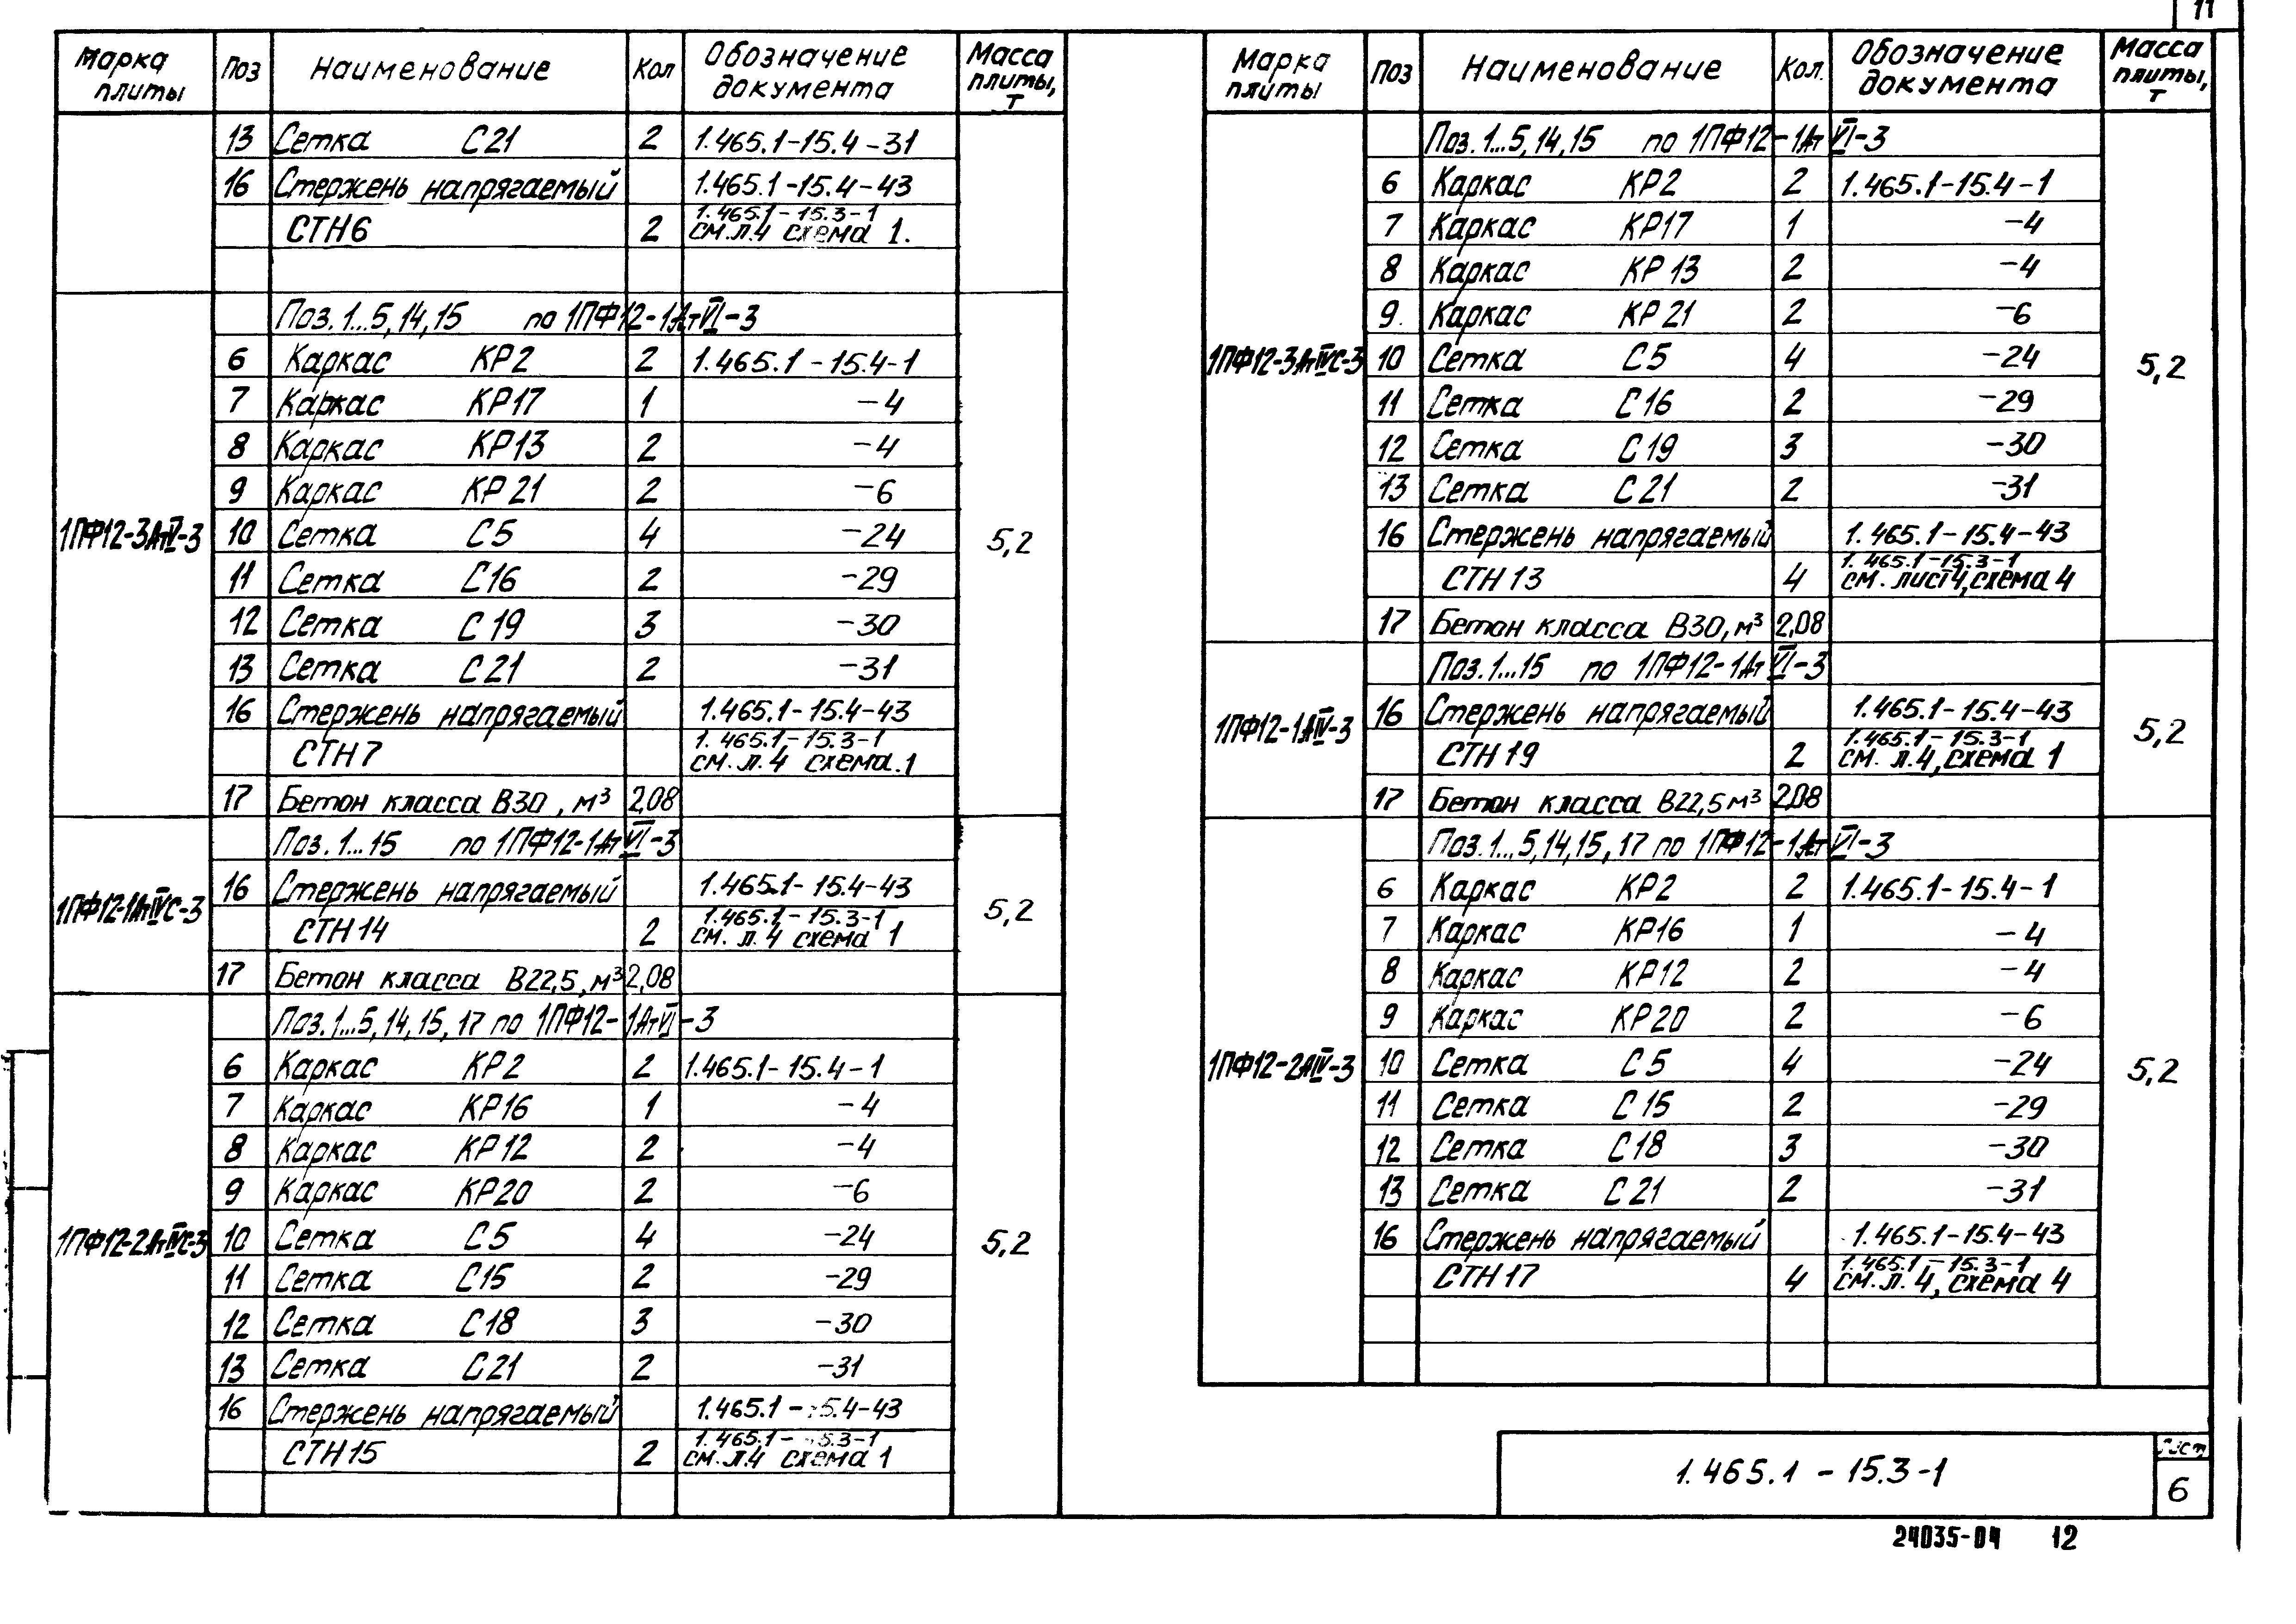 11
Марка плиты Поз Наименование Кол Обозначение документа Масса плиты, т
13 Сетка С21 2 1.465.1-15.4-31
16 Стержень напрягаемый 1.465.1-15.4-43
СТН6 2 1.465.1-15.3-1 см.л.4 схема 1.
Поз.1...5,14,15 по 1ПФ12-1АтVI-3
6 Каркас КР2 2 1.465.1-15.4-1
7 Каркас КР17 1 -4
8 Каркас КР13 2 -4
9 Каркас КР21 2 -6
1ПФ12-3АтV-3 10 Сетка С5 4 -24 5,2
11 Сетка С16 2 -29
12 Сетка С19 3 -30
13 Сетка С21 2 -31
16 Стержень напрягаемый 1.465.1-15.4-43
СТН7 2 1.465.1-15.3-1 см.л.4 схема.1
17 Бетон класса В30, м³ 2,08
Поз.1...15 по 1ПФ12-1АтVI-3
1ПФ12-1АтIVС-3 16 Стержень напрягаемый 1.465.1-15.4-43 5,2
СТН14 2 1.465.1-15.3-1 см. л.4 схема 1
17 Бетон класса В22,5, м³ 2,08
Поз.1...5,14,15,17 по 1ПФ12-1АтVI-3
6 Каркас КР2 2 1.465.1-15.4-1
7 Каркас КР16 1 -4
8 Каркас КР12 2 -4
9 Каркас КР20 2 -6
1ПФ12-2АтIVС-3 10 Сетка С5 4 -24 5,2
11 Сетка С15 2 -29
12 Сетка С18 3 -30
13 Сетка С21 2 -31
16 Стержень напрягаемый 1.465.1-15.4-43
СТН15 2 1.465.1-15.3-1 см.л.4 схема 1
Марка плиты Поз Наименование Кол. Обозначение документа Масса плиты, т
Поз.1...5,14,15 по 1ПФ12-1АтVI-3
6 Каркас КР2 2 1.465.1-15.4-1
7 Каркас КР17 1 -4
8 Каркас КР13 2 -4
9. Каркас КР21 2 -6
1ПФ12-3АтIVС-3 10 Сетка С5 4 -24 5,2
11 Сетка С16 2 -29
12 Сетка С19 3 -30
13 Сетка С21 2 -31
16 Стержень напрягаемый 1.465.1-15.4-43
СТН13 4 1.465.1-15.3-1 см. лист4,схема 4
17 Бетон класса В30, м³ 2,08
Поз.1...15 по 1ПФ12-1АтVI-3
1ПФ12-1АIV-3 16 Стержень напрягаемый 1.465.1-15.4-43 5,2
СТН19 2 1.465.1-15.3-1 см. л.4,схема 1
17 Бетон класса В22,5 м³ 2,08
Поз.1...5,14,15,17 по 1ПФ12-1АтVI-3
6 Каркас КР2 2 1.465.1-15.4-1
7 Каркас КР16 1 -4
8 Каркас КР12 2 -4
9 Каркас КР20 2 -6
1ПФ12-2АIV-3 10 Сетка С5 4 -24 5,2
11 Сетка С15 2 -29
12 Сетка С18 3 -30
13 Сетка С21 2 -31
16 Стержень напрягаемый 1.465.1-15.4-43
СТН17 4 1.465.1-15.3-1 см.л.4, схема 4
1.465.1-15.3-1 Лист
6
24035-04 12